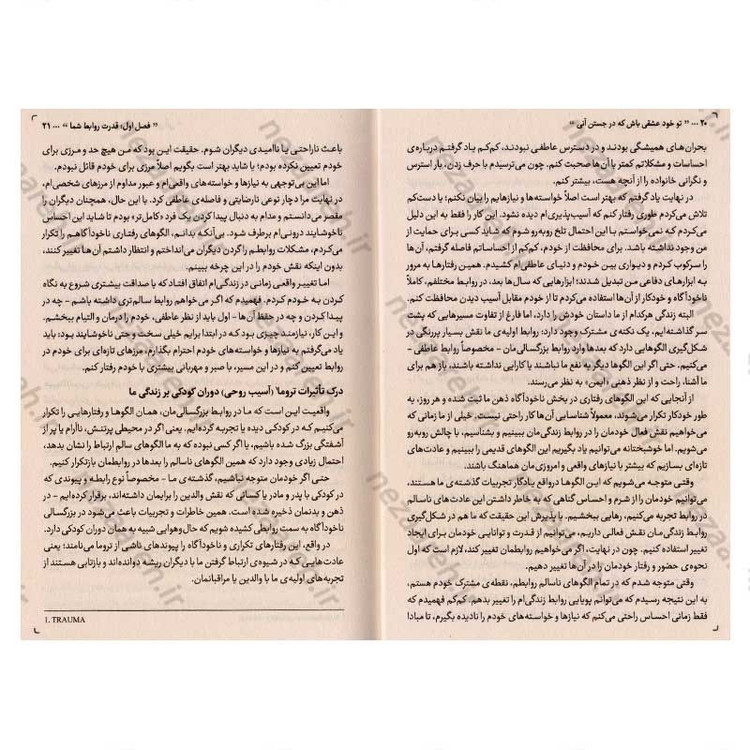 ۲۰ ... « تو خود عشقی باش که در جستن آنی »
بحران‌های همیشگی بودند و در دسترس عاطفی نبودند، کم‌کم یاد گرفتم درباره‌ی
احساسات و مشکلاتم کمتر با آن‌ها صحبت کنم. چون می‌ترسیدم با حرف زدن، بار استرس
و نگرانی خانواده را از آنچه هست، بیشتر کنم.
در نهایت یاد گرفتم که بهتر است اصلاً خواسته‌ها و نیازهایم را بیان نکنم؛ یا دست‌کم
تلاش می‌کردم طوری رفتار کنم که آسیب‌پذیری‌ام دیده نشود. این کار را فقط به این دلیل
می‌کردم که نمی‌خواستم با این احتمال تلخ روبه‌رو شوم که شاید کسی برای حمایت از
من وجود نداشته باشد. برای محافظت از خودم، کم‌کم از احساساتم فاصله گرفتم، آن‌ها
را سرکوب کردم و دیواری بین خودم و دنیای عاطفی‌ام کشیدم. همین رفتارها به مرور
به ابزارهای دفاعی من تبدیل شدند؛ ابزارهایی که سال‌ها بعد، در روابط مختلفم، کاملاً
ناخودآگاه و خودکار از آن‌ها استفاده می‌کردم تا از خودم مقابل آسیب دیدن محافظت کنم.
البته زندگی هرکدام از ما داستان خودش را دارد، اما فارغ از تفاوت مسیرهایی که پشت
سر گذاشته‌ایم، یک نکته‌ی مشترک وجود دارد: روابط اولیه‌ی ما نقش بسیار پررنگی در
شکل‌گیری الگوهایی دارد که بعدها وارد روابط بزرگسالی‌مان - مخصوصاً روابط عاطفی -
می‌کنیم. حتی اگر این الگوها دیگر به نفع ما نباشند یا کارایی نداشته باشند، باز هم برای
ما آشنا، راحت و از نظر ذهنی «ایمن» به نظر می‌رسند.
از آنجایی که این الگوهای رفتاری در بخش ناخودآگاه ذهن ما ثبت شده و هر روز، به
طور خودکار تکرار می‌شوند، معمولاً شناسایی آن‌ها کار راحتی نیست. خیلی از ما زمانی که
می‌خواهیم نقش فعال خودمان را در روابط زندگی‌مان ببینیم و بشناسیم، با چالش روبه‌رو
می‌شویم. اما خوشبختانه می‌توانیم یاد بگیریم این الگوهای قدیمی را ببینیم و عادت‌های
تازه‌ای بسازیم که بیشتر با نیازهای واقعی و امروزی‌مان هماهنگ باشند.
وقتی متوجه می‌شویم که این الگوها درواقع یادگار تجربیات گذشته‌ی ما هستند،
می‌توانیم خودمان را از شرم و احساس گناهی که به خاطر داشتن این عادت‌های ناسالم
در روابط تجربه می‌کنیم، رهایی ببخشیم. با پذیرش این حقیقت که ما هم در شکل‌گیری
روابط زندگی‌مان نقش فعالی داریم، می‌توانیم از قدرت و توانایی خودمان برای ایجاد
تغییر استفاده کنیم. چون در نهایت، اگر می‌خواهیم روابطمان تغییر کند، لازم است که اول
نحوه‌ی حضور و رفتار خودمان را در آن‌ها تغییر دهیم.
وقتی متوجه شدم که در تمام الگوهای ناسالم روابطم، نقطه‌ی مشترک خودم هستم،
به این نتیجه رسیدم که می‌توانم پویایی روابط زندگی‌ام را تغییر بدهم. کم‌کم فهمیدم که
فقط زمانی احساس راحتی می‌کنم که نیازها و خواسته‌های خودم را نادیده بگیرم، تا مبادا
« فصل اول: قدرت روابط شما » ... ۲۱
باعث ناراحتی یا ناامیدی دیگران شوم. حقیقت این بود که من هیچ حد و مرزی برای
خودم تعیین نکرده بودم؛ یا شاید بهتر است بگویم اصلاً مرزی برای خودم قائل نبودم.
اما این بی‌توجهی به نیازها و خواسته‌های واقعی‌ام و عبور مداوم از مرزهای شخصی‌ام،
در نهایت مرا دچار نوعی نارضایتی و فاصله‌ی عاطفی کرد. با این حال، همچنان دیگران را
مقصر می‌دانستم و مدام به دنبال پیدا کردن یک فرد «کامل‌تر» بودم تا شاید این احساس
ناخوشایند درونی‌ام برطرف شود. بی‌آنکه بدانم، الگوهای رفتاری ناخودآگاهم را تکرار
می‌کردم، مشکلات روابطم را گردن دیگران می‌انداختم و انتظار داشتم آن‌ها تغییر کنند،
بدون اینکه نقش خودم را در این چرخه ببینم.
اما تغییر واقعی زمانی در زندگی‌ام اتفاق افتاد که با صداقت بیشتری شروع به نگاه
کردن به خودم کردم. فهمیدم که اگر می‌خواهم روابط سالم‌تری داشته باشم - چه در
پیدا کردن و چه در حفظ آن‌ها - اول باید از نظر عاطفی، خودم را درمان و التیام ببخشم.
و این کار، نیازمند چیزی بود که در ابتدا برایم خیلی سخت و حتی ناخوشایند بود؛ باید
یاد می‌گرفتم به نیازها و خواسته‌های خودم احترام بگذارم، مرزهای تازه‌ای برای خودم در
روابط تعیین کنم و در این مسیر، با صبر و مهربانی بیشتری با خودم رفتار کنم.
درک تأثیرات تروما¹ (آسیب روحی) دوران کودکی بر زندگی ما
واقعیت این است که ما در روابط بزرگسالی‌مان، همان الگوها و رفتارهایی را تکرار
می‌کنیم که در کودکی دیده یا تجربه کرده‌ایم. یعنی اگر در محیطی پرتنش، ناآرام یا پر از
آشفتگی بزرگ شده باشیم، یا اگر کسی نبوده که به ما الگوهای سالم ارتباط را نشان بدهد،
احتمال زیادی وجود دارد که همین الگوهای ناسالم را بعدها در روابطمان بازتکرار کنیم.
حتی اگر خودمان متوجه نباشیم، گذشته‌ی ما - مخصوصاً نوع رابطه و پیوندی که
در کودکی با پدر و مادر یا کسانی که نقش والدین را برایمان داشته‌اند، برقرار کرده‌ایم - در
ذهن و بدنمان ذخیره شده است. همین خاطرات و تجربیات باعث می‌شود در بزرگسالی
ناخودآگاه به سمت روابطی کشیده شویم که حال‌وهوایی شبیه به همان دوران کودکی دارد.
در واقع، این رفتارهای تکراری و ناخودآگاه را پیوندهای ناشی از تروما می‌نامند؛ یعنی
عادت‌هایی که در شیوه‌ی ارتباط گرفتن ما با دیگران ریشه دوانده‌اند و بازتابی هستند از
تجربه‌های اولیه‌ی ما با والدین یا مراقبانمان.
1. TRAUMA
nezamehr.ir